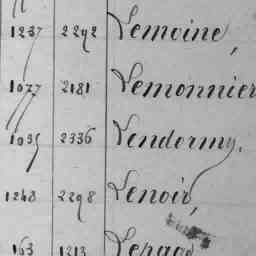 1237 2292 Lemoine,
1077 2181 Lemonnier
1035 2336 Lendormy,
1248 2298 Lenoir,
163 1213 Lepage